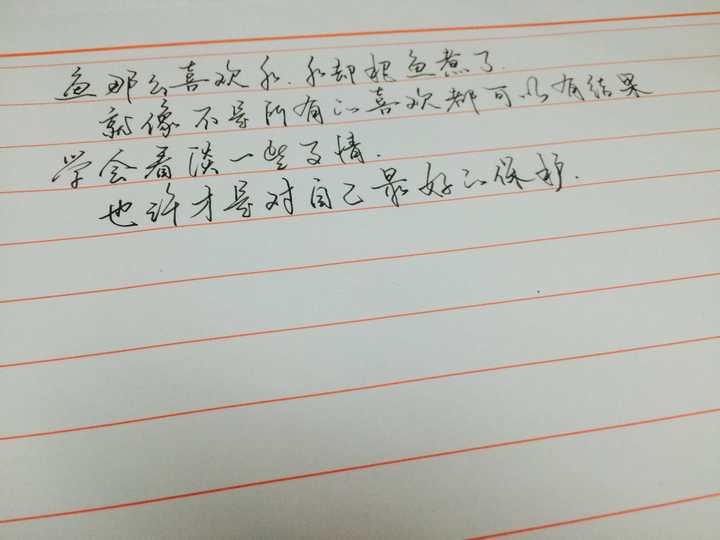 鱼那么喜欢水.水却把鱼煮了.
就像不是所有的喜欢都可以有结果
学会看淡一些事情.
也许才是对自己最好的保护.